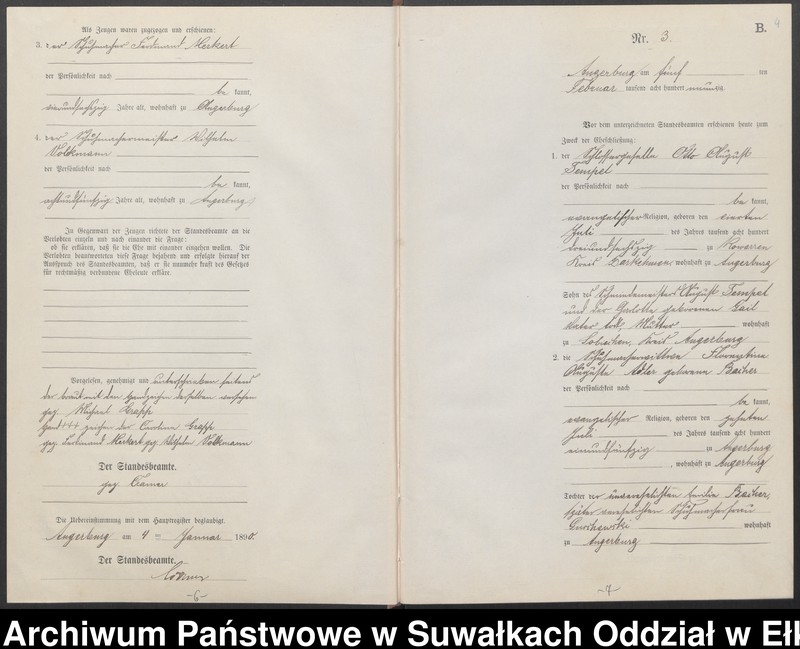 Als Zeugen waren zugezogen und erschienen:
3. der Schuhmacher Ferdinand Merkert
der Persönlichkeit nach
be kannt,
vierundsechszig Jahre alt, wohnhaft zu Angerburg
4. der Schuhmachermeister Wilhelm
Volkmann
der Persönlichkeit nach
be kannt,
achtundfünfzig Jahre alt, wohnhaft zu Angerburg
In Gegenwart der Zeugen richtete der Standesbeamte an die
Verlobten einzeln und nach einander die Frage:
ob sie erklären, daß sie die Ehe mit einander eingehen wollen. Die
Verlobten beantworteten diese Frage bejahend und erfolgte hierauf der
Ausspruch des Standesbeamten, daß er sie nunmehr kraft des Gesetzes
für rechtmäßig verbundene Eheleute erkläre.
Vorgelesen, genehmigt und unterschrieben seitens
der Braut mit den Handzeichen derselben versehen
gez. Michael
Hand +++ zeichen der Caroline
gez. Ferdinand Merkert gez. Wilhelm Volkmann
Der Standesbeamte.
gez. Cramer
Die Uebereinstimmung mit dem Hauptregister beglaubigt.
Angerburg am 4 ten Januar 1890.
Der Standesbeamte.
-6-
B.
Nr. 3.
Angerburg am fünf ten
Februar tausend acht hundert neunzig
Vor dem unterzeichneten Standesbeamten erschienen heute zum
Zweck der Eheschließung:
1. der Schlossergeselle Otto August
Tempel
der Persönlichkeit nach
be kannt,
evangelischer Religion, geboren den vierten
Juli des Jahres tausend acht hundert
dreiundsechszig zu
Kreis Darkehmen, wohnhaft zu Angerburg
Sohn des Schmiedemeisters August Tempel
und der geborenen
Vater todt, Mutter wohnhaft
zu Kreis Angerburg
2. die Schuhmacherwittwe Florentine
Auguste Adler geborene
der Persönlichkeit nach
be kannt,
evangelischer Religion, geboren den zehnten
Juli des Jahres tausend acht hundert
einundfünfzig zu Angerburg
, wohnhaft zu Angerburg
Tochter der unverehelichten
später verehelichten Schuhmacherfrau
wohnhaft
zu Angerburg
-7-
Archiwum Państwowe w Suwałkach Oddział w Ełk